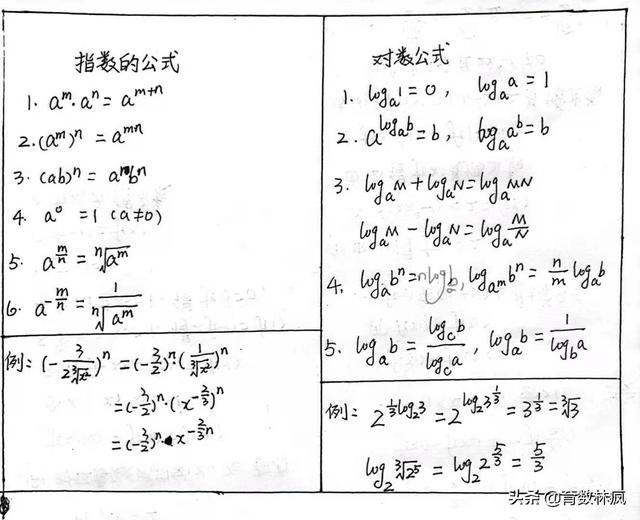 指数的公式
1. a^m·a^n = a^{m+n}
2. (a^m)^n = a^{mn}
3. (ab)^n = a^n b^n
4. a^0 = 1 (a≠0)
5. a^{m/n} = ⁿ√(a^m)
6. a^{-m/n} = 1/ⁿ√(a^m)
例: (-3/(2³√(x²)))^n = (-3/2)^n·(1/³√(x²))^n
= (-3/2)^n·(x^{-2/3})^n
= (-3/2)^n·x^{-2/3 n}
对数公式
1. log_a 1 = 0, log_a a = 1
2. a^{log_a b} = b, log_a a^b = b
3. log_a M + log_a N = log_a MN
log_a M - log_a N = log_a M/N
4. log_a b^n = n log_a b, log_{a^m} b^n = n/m log_a b
5. log_a b = log_c b/log_c a, log_a b = 1/log_b a
例: 2^{1/3 log_2 3} = 2^{log_2 3^{1/3}} = 3^{1/3} = ³√3
log_2 ³√(2^5) = log_2 2^{5/3} = 5/3
头条@育数林疯